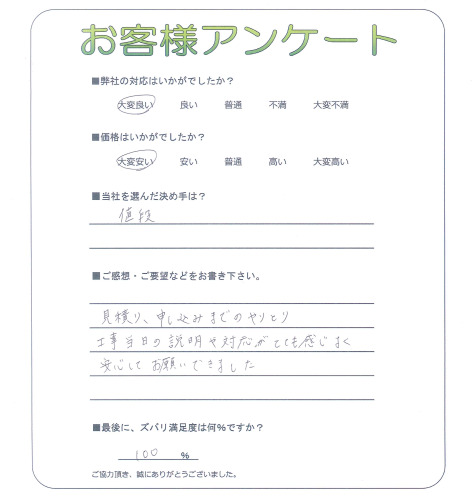 お客様アンケート
■弊社の対応はいかがでしたか？
大変良い 良い 普通 不満 大変不満
■価格はいかがでしたか？
大変安い 安い 普通 高い 大変高い
■当社を選んだ決め手は？
値段
■ご感想・ご要望などをお書き下さい。
見積り、申し込みまでのやりとり
工事当日の説明や対応がとても感じよく
安心してお願いできました
■最後に、ズバリ満足度は何%ですか？
100 %
ご協力頂き、誠にありがとうございました。